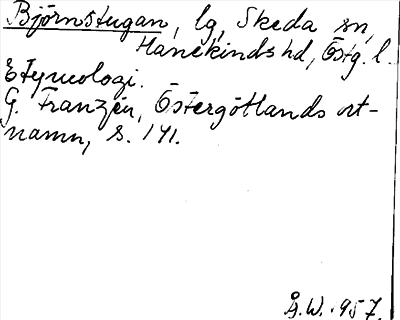 Björnstugan, lg, Skeda sn,
Hanekinds hd, Östg. l.
Etymologi.
G. Franzén, Östergötlands ort-
namn, s. 141.
Å.W. 1957.